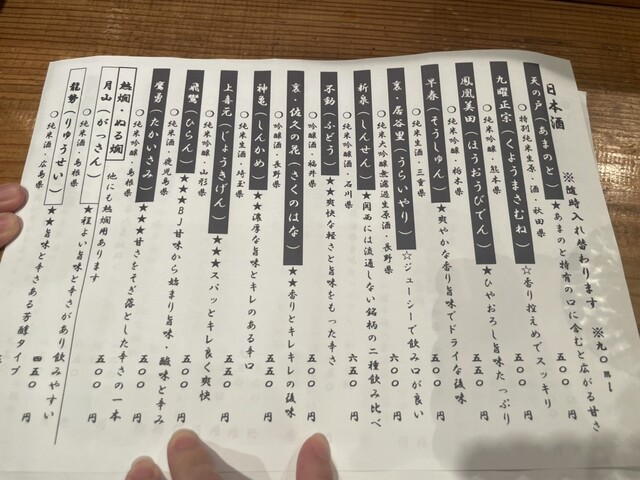 日本酒　※随時入れ替わります　※90ml
天の戸（あまのと）
○特別純米生原酒・秋田県
★あまのと特有の口に含むと広がる甘さ
五〇〇円
九曜正宗（くようまさむね）
○純米吟醸・熊本県
☆香り控えめでスッキリ
五〇〇円
鳳凰美田（ほうおうびでん）
○純米吟醸・栃木県
★ひやおろし旨味たっぷり
五〇〇円
早春（そうしゅん）
○純米生酒・三重県
★爽やかな香り旨味でドライな後味
五〇〇円
裏・居谷里（うらいやり）
○純米大吟醸無濾過生原酒・長野県
☆ジューシーで飲み口が良い
六〇〇円
新泉（しんせん）
○純米吟醸・石川県
★関西には流通しない銘柄の二種飲み比べ
六五〇円
不動（ふどう）
○吟醸酒・福井県
★★爽快な軽さと旨味をもった辛さ
五〇〇円
裏・佐久の花（さくのはな）
○吟醸酒・長野県
★★香りとキレキレの後味
五〇〇円
神亀（しんかめ）
○純米生酒・埼玉県
★★濃厚な旨味とキレのある辛口
五五〇円
上喜元（じょうきげん）
○純米吟醸・山形県
★★★スパッとキレ良く爽快
五五〇円
飛鸞（ひらん）
○純米酒・鹿児島県
★★★BJ甘味から始まり旨味・酸味と辛み
五〇〇円
鷹勇（たかいさみ）
○純米吟醸・島根県
★★★甘さをそぎ落とした辛さの一本
五〇〇円
熱燗・ぬる燗　他にも熱燗用あります
月山（がっさん）
○純米酒・島根県
★程よい旨味と辛さがあり飲みやすい
五〇〇円
龍勢（りゅうせい）
○純米酒・広島県
★★旨味と辛さある芳醇タイプ
四五〇円